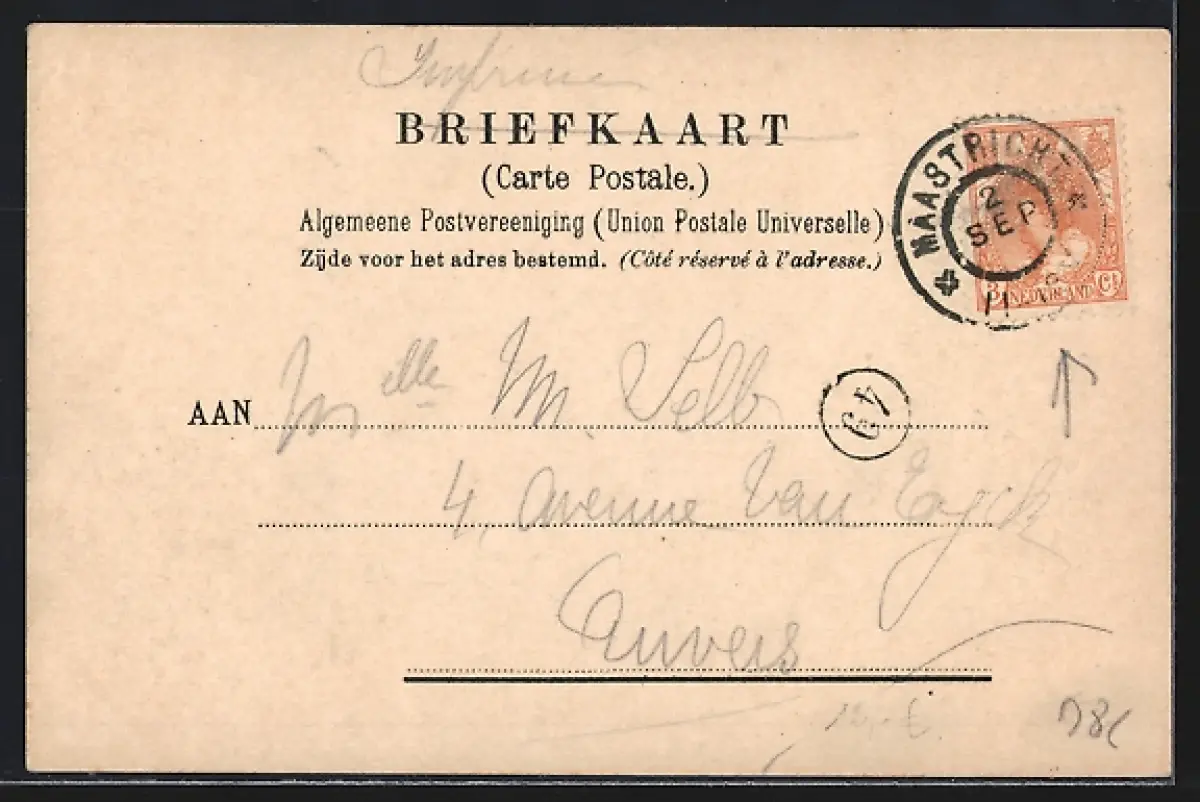 Imprimé
BRIEFKAART
(Carte Postale.)
Algemeene Postvereeniging (Union Postale Universelle)
Zijde voor het adres bestemd. (Côté réservé à l'adresse.)
MAASTRICHT
2
SEP
11
3 NEDERLAND Ct
AAN Melle M. Selb
49
4, Avenue Van Eyck
Anvers